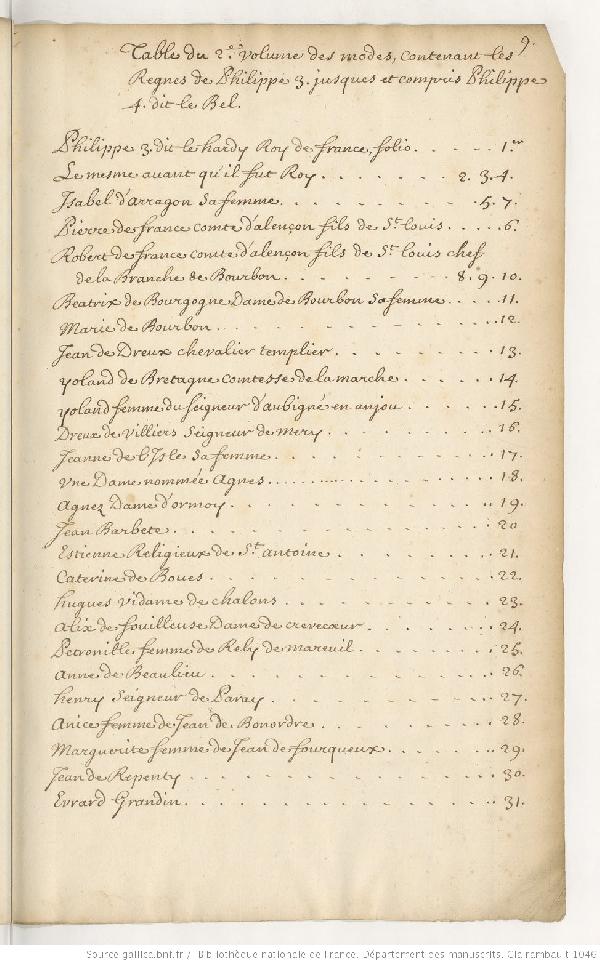 9.
Table du 2.e volume des modes, contenant les
Regnes de Philippe 3. jusques et compris Philippe
4. dit le Bel.
Philippe 3. dit le hardy Roy de france, folio . . . . . 1.er
Le mesme auant qu'il fut Roy . . . . . . . 2. 3. 4.
Isabel d'arragon sa femme . . . . . . . . . 5. 7.
Pierre de france comte d'alençon fils de St. louis . . . . . 6.
Robert de france comte d'alençon fils de St. louis chef
de la Branche de Bourbon . . . . . . . . 8. 9. 10.
Beatrix de Bourgogne Dame de Bourbon sa femme . . . . 11.
Marie de Bourbon . . . . . . . . . . . 12.
Jean de Dreux chevalier templier . . . . . . . . 13.
yoland de Bretagne comtesse de la marche . . . . . . 14.
yoland femme du seigneur d'aubigné en anjou . . . . . . 15.
Dreux de villiers Seigneur de mery . . . . . . . . 16.
Jeanne de l'Isle sa femme . . . . . . . . . . 17.
vne Dame nommée Agnes . . . . . . . . . . 18.
Agnez Dame d'ormoy . . . . . . . . . . . 19.
Jean Barbete . . . . . . . . . . . . . 20
Estienne Religieux de St. antoine . . . . . . . . 21.
Caterine de Boues . . . . . . . . . . . . 22.
hugues vidame de chalons . . . . . . . . . . 23.
alix de fouilleuse Dame de crevecœur . . . . . . . 24.
Petronille femme de Rely de mareuil . . . . . . . 25.
Anne de Beaulieu . . . . . . . . . . . . 26.
henry Seigneur de . . . . . . . . . . 27.
Anice femme de Jean de Bonordre . . . . . . . . 28.
Marguerite femme de Jean de fourqueux . . . . . . 29.
Jean de Repenty . . . . . . . . . . . . . 30.
Evrard Grandin . . . . . . . . . . . . . 31.
Source gallica.bnf.fr / Bibliothèque nationale de France. Département des manuscrits. Clairambault 1046